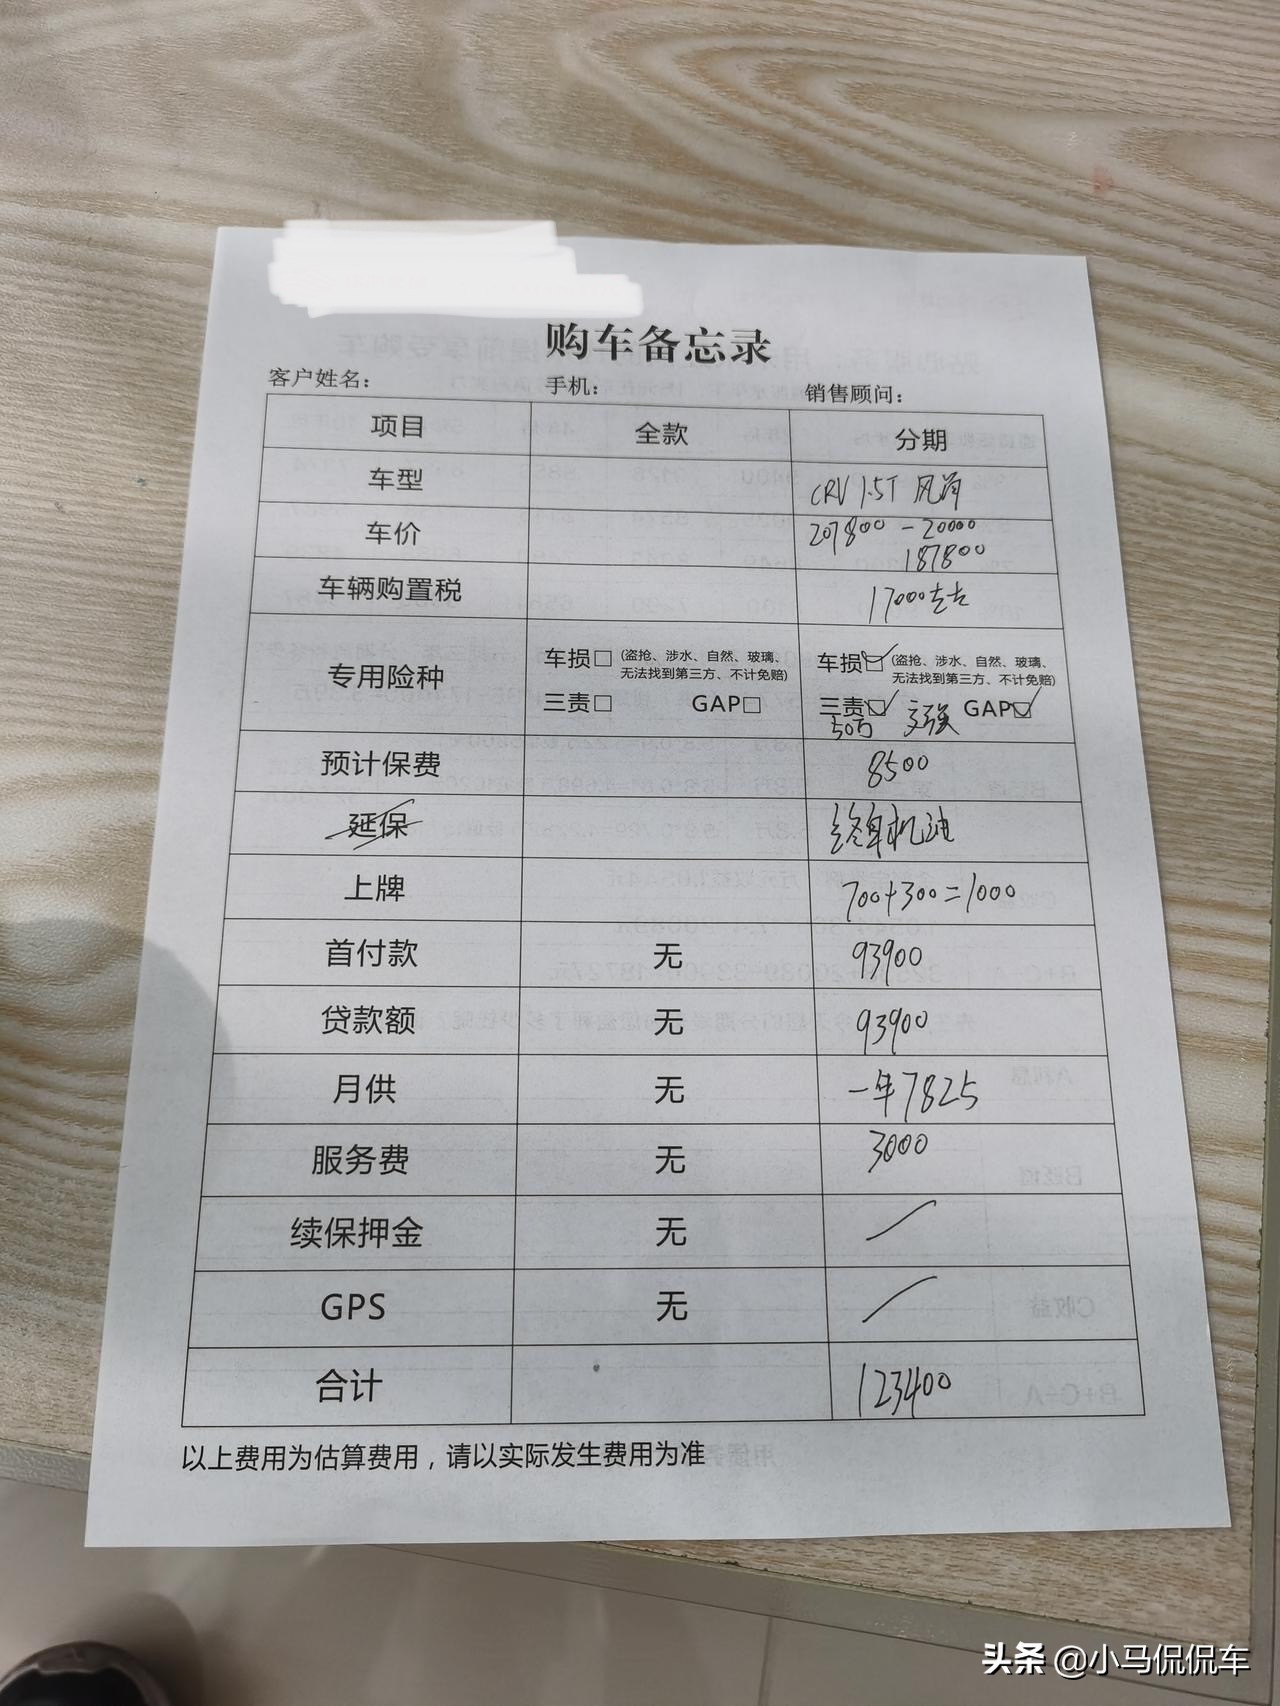 购车备忘录
客户姓名： 手机： 销售顾问：
项目 全款 分期
车型 CRV 1.5T 风尚
车价 207800 - 20000
187800
车辆购置税 17000左右
专用险种 车损□ (盗抢、涉水、自然、玻璃、无法找到第三方、不计免赔) 车损☑ (盗抢、涉水、自然、玻璃、无法找到第三方、不计免赔)
三责□ GAP□ 三责☑ GAP☑
50万 交强
预计保费 8500
延保 终身机油
上牌 700+300=1000
首付款 无 93900
贷款额 无 93900
月供 无 一年7825
服务费 无 3000
续保押金 无 /
GPS 无 /
合计 123400
以上费用为估算费用，请以实际发生费用为准
头条 @小马侃侃车